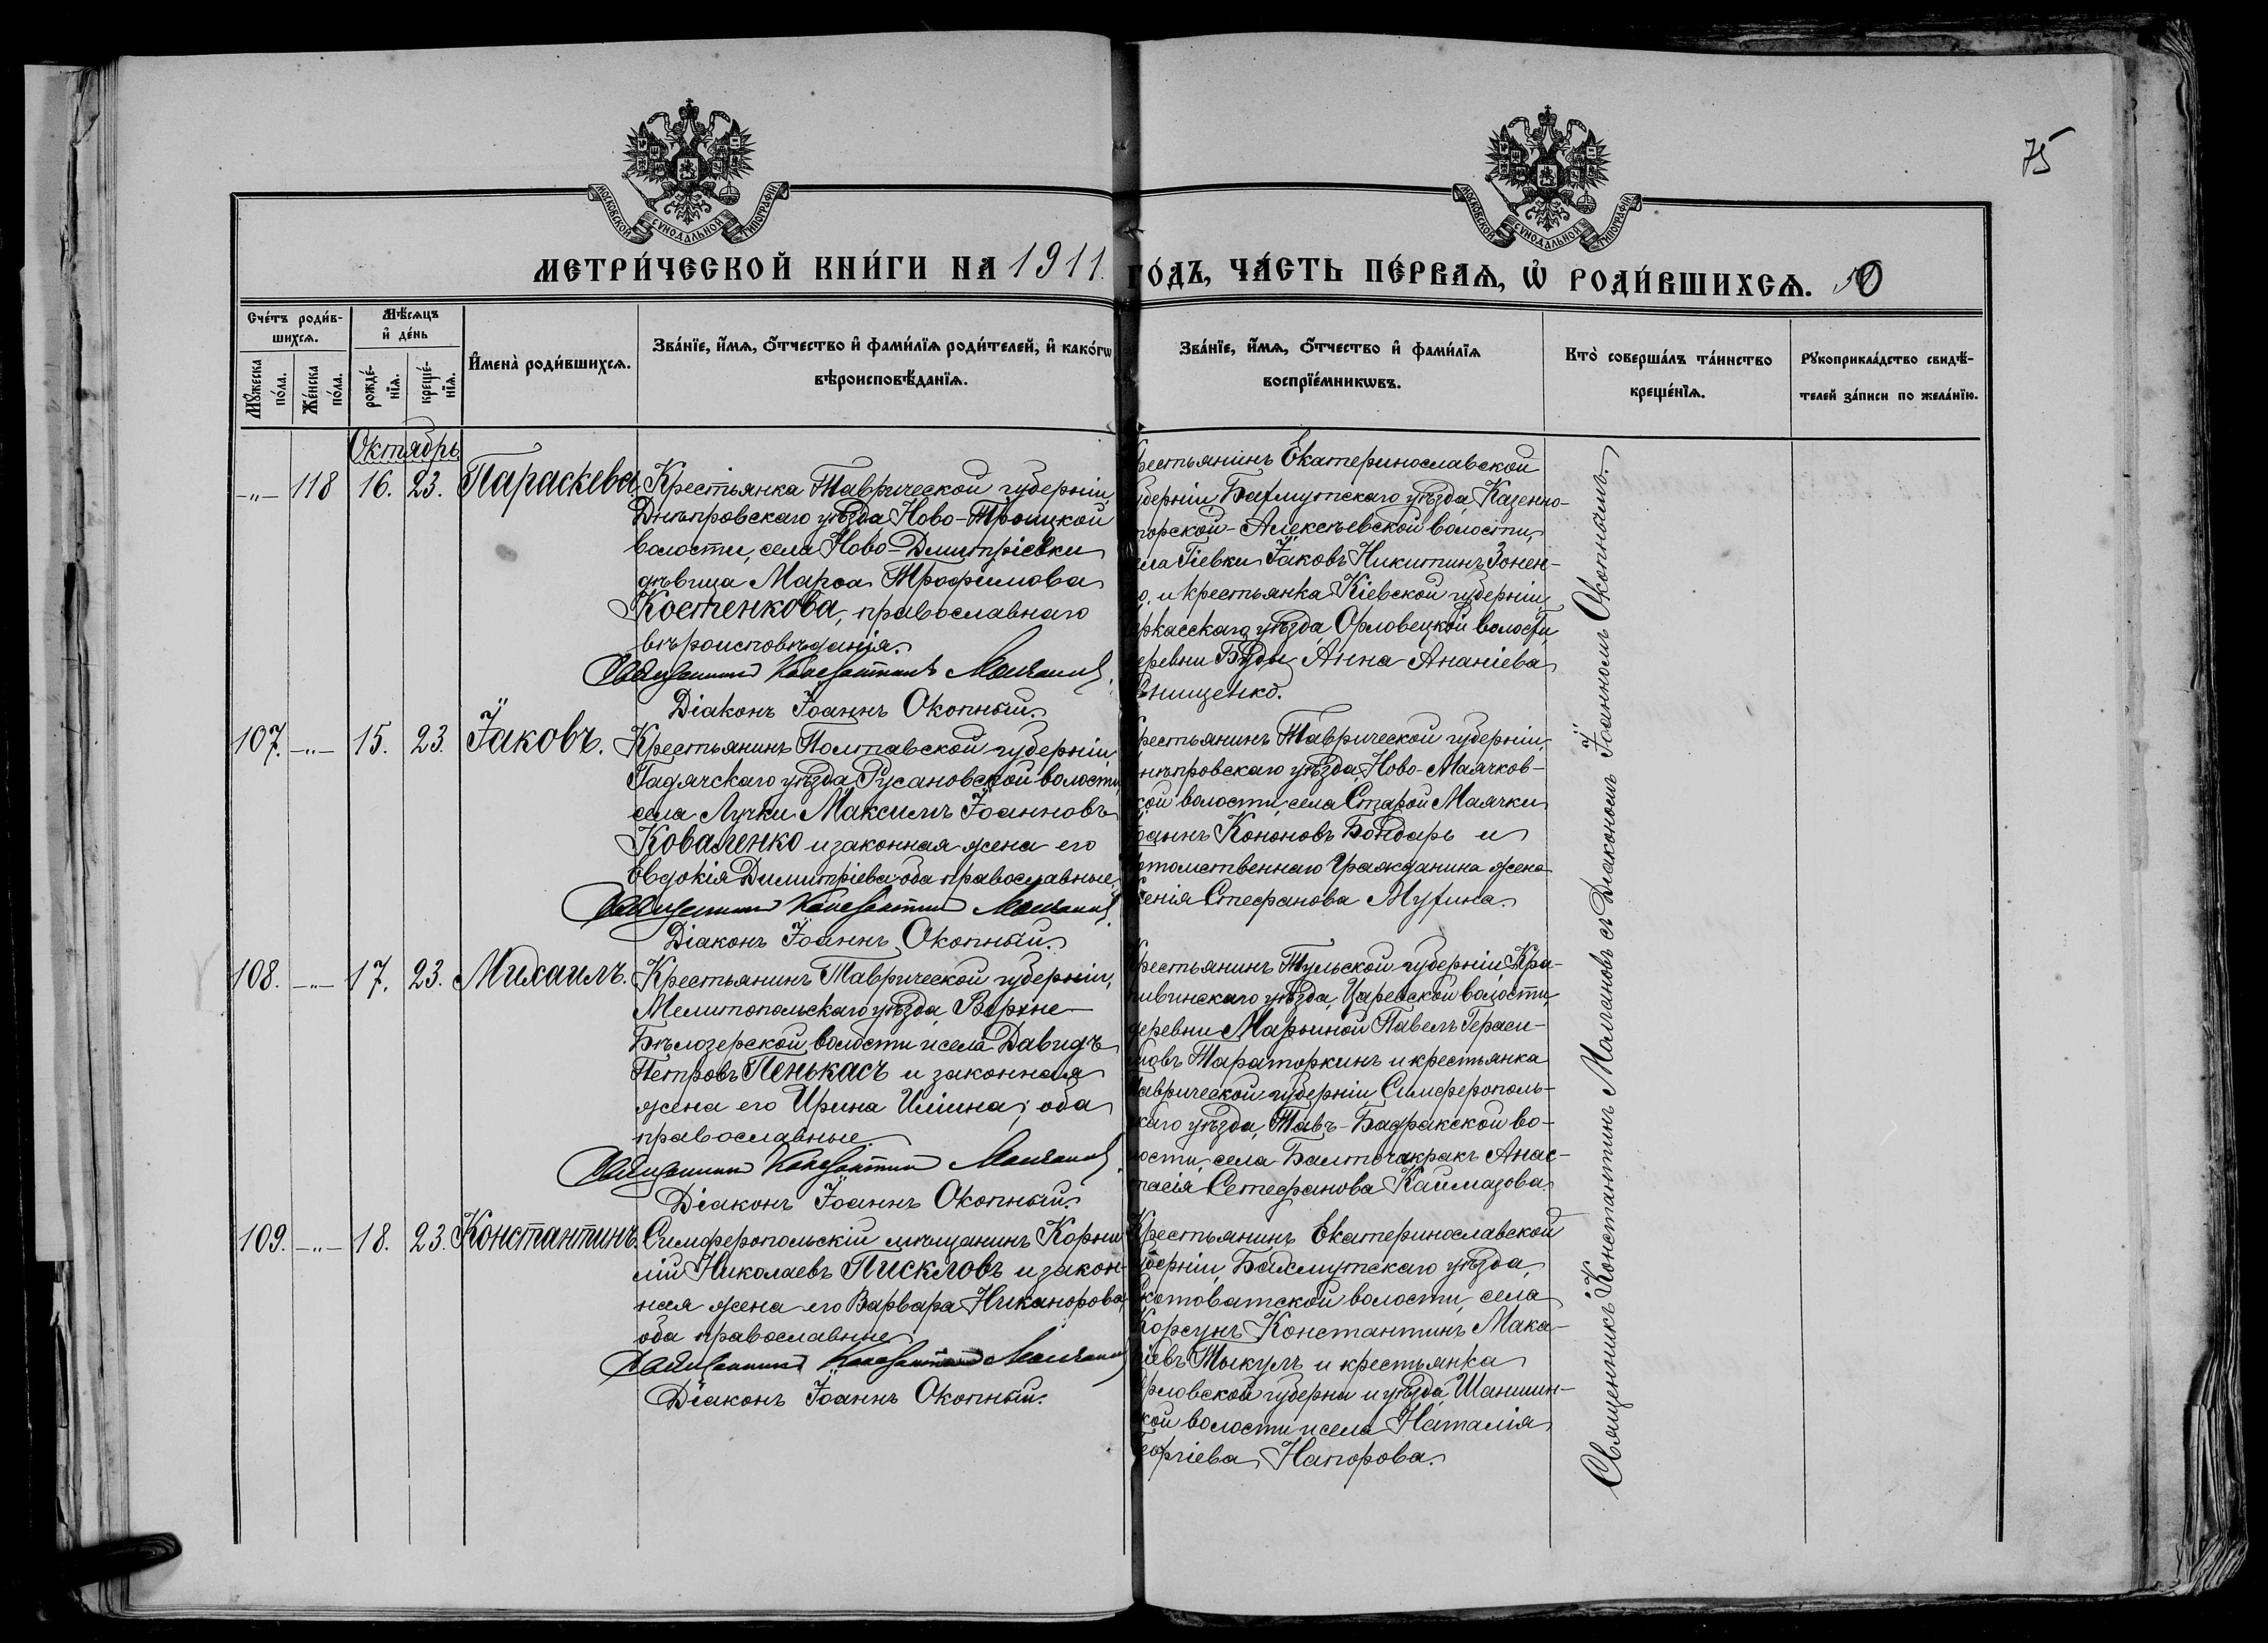 75
МОСКОВСКОЙ СУНОДАЛЬНОЙ ТИПОГРАФІИ
МОСКОВСКОЙ СУНОДАЛЬНОЙ ТИПОГРАФІИ
МЕТРИ́ЧЕСКОЙ КНИ́ГИ НА 1911.
ГО́ДЪ, ЧА́СТЬ ПЕ́РВАѦ, Ѡ҆ РОДИ́ВШИХСѦ. 50
Сче́тъ роди́в-
шихсѧ.
Мѣ́сѧцъ
и҆ де́нь
Мꙋ́жеска
по́ла.
Же́нска
по́ла.
рожде́-
нїѧ.
креще́-
нїѧ.
И҆мена̀ роди́вшихсѧ.
Зва́нїе, и҆́мѧ, ѻ҆́тчество и҆ фами́лїѧ роди́телей, и҆ како́гѡ
вѣроисповѣ́данїѧ.
Зва́нїе, и҆́мѧ, ѻ҆́тчество и҆ фами́лїѧ
воспрїе́мникѡвъ.
Кто̀ соверша́лъ та́инство
креще́нїѧ.
Рꙋкоприкла́дство свидѣ́-
телей за́писи по жела́нїю.
Октябрь
-„- 118 16. 23. Параскева.
Крестьянка Таврической губерніи,
Днѣпровскаго уѣзда, Ново-Троицкой
волости, села Ново-Димитріевки
дѣвица Марѳа Трофимова
Костенкова, православнаго
вѣроисповѣданія.
Священникъ Константинъ Молчановъ.
Діаконъ Іоаннъ Окопный.
рестьянинъ Екатеринославской
уберніи Бахмутскаго уѣзда, Казенно-
торской-Алексѣевской волости,
ела Гіевки Іаковъ Никитинъ Зонен-
о. и крестьянка Кіевской губерніи,
ркасскаго уѣзда, Орловецкой волости,
еревни Буды Анна Ананіева
нищенко.
107. -„- 15. 23. Іаковъ.
Крестьянинъ Полтавской губерніи,
Гадячскаго уѣзда, Русановской волости,
села Лучки Максимъ Іоанновъ
Коваленко и законная жена его
Евдокія Димитріева, оба православные.
Священникъ Константинъ Молчановъ.
Діаконъ Іоаннъ Окопный.
рестьянинъ Таврической губерніи,
нѣпровскаго уѣзда, Ново-Маячков-
кой волости, села Старой Маячки
оаннъ Кононовъ Бондарь и
отомственнаго Гражданина жена
сенія Стефанова Мухина.
108. -„- 17. 23. Михаилъ.
Крестьянинъ Таврической губерніи,
Мелитопольскаго уѣзда, Верхне-
Бѣлозерской волости и села Давидъ
Петровъ Пенькасъ и законная
жена его Ирина Иліина; оба
православные.
Священникъ Константинъ Молчановъ.
Діаконъ Іоаннъ Окопный.
рестьянинъ Тульской губерніи, Кра-
пивинскаго уѣзда, Царевской волости,
деревни Марьиной Павелъ Гераси-
мовъ Тараторкинъ и крестьянка
аврической губерніи, Симферополь-
каго уѣзда, Тавъ-Бадракской во-
лости, села Балточакракъ Анас-
тасія Стефанова Каймазова.
109. -„- 18. 23. Константинъ.
Симферопольскій мѣщанинъ Корни-
лій Николаевъ Пискловъ и закон-
ная жена его Варвара Никанорова,
оба православные.
Священникъ Константинъ Молчановъ
Діаконъ Іоаннъ Окопный.
Крестьянинъ Екатеринославской
уберніи, Бахмутскаго уѣзда,
котоватской волости, села
Корсунь Константинъ Мака-
ріевъ Тыкулъ и крестьянка
рловской губерни и уѣзда, Шаншин-
кой волости и села Наталія
еоргіева Напорова.
Священникъ Константинъ Молчановъ съ Діакономъ Іоанномъ Окопнымъ.